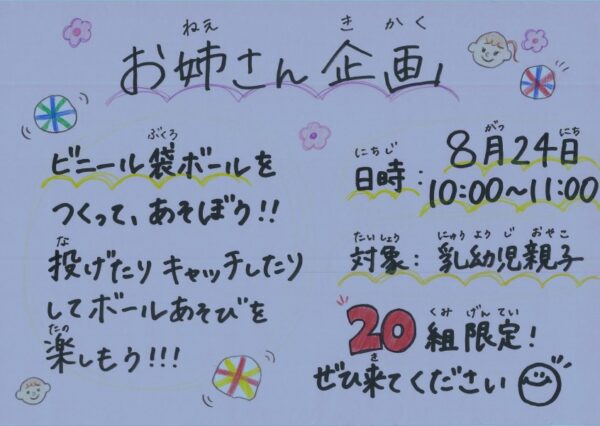 ねえ きかく
お姉さん企画
ぶくろ
ビニール袋ボールを
つくって、あそぼう!!
な
投げたりキャッチしたり
してボールあそびを
たの
楽しもう!!!
にちじ がつ にち
日時:8月24日
10:00~11:00
たいしょう にゅうようじ おやこ
対象:乳幼児親子
くみ げんてい
20組限定!
き
ぜひ来てください